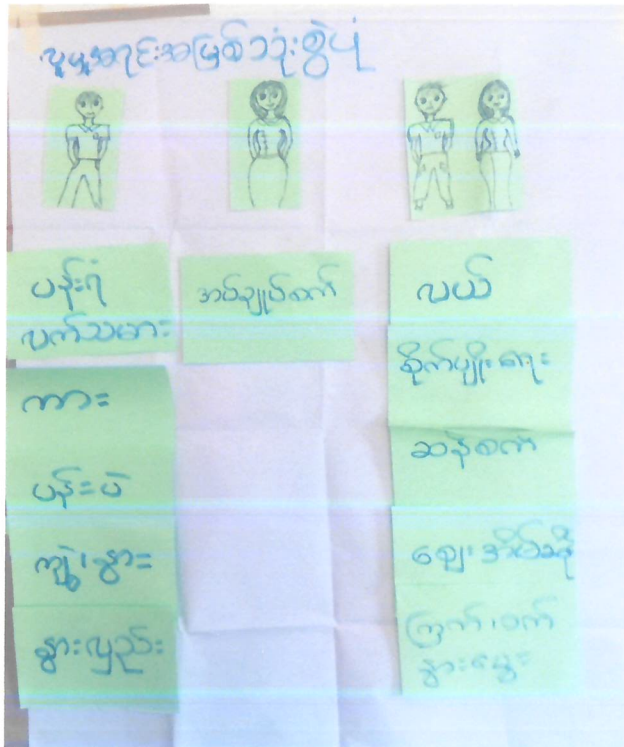 လူမှုအရင်းအမြစ်သုံးစွဲပုံ
ပန်းရံ
လက်သမား
ကား
ပန်းပဲ
ကျွဲ၊ နွား
နွားလှည်း
အပ်ချုပ်စက်
လယ်
စိုက်ပျိုးရေး
ဆန်စက်
ဈေး အိမ်ဆိုင်
ကြက်၊ ဝက်
နွားမွေး